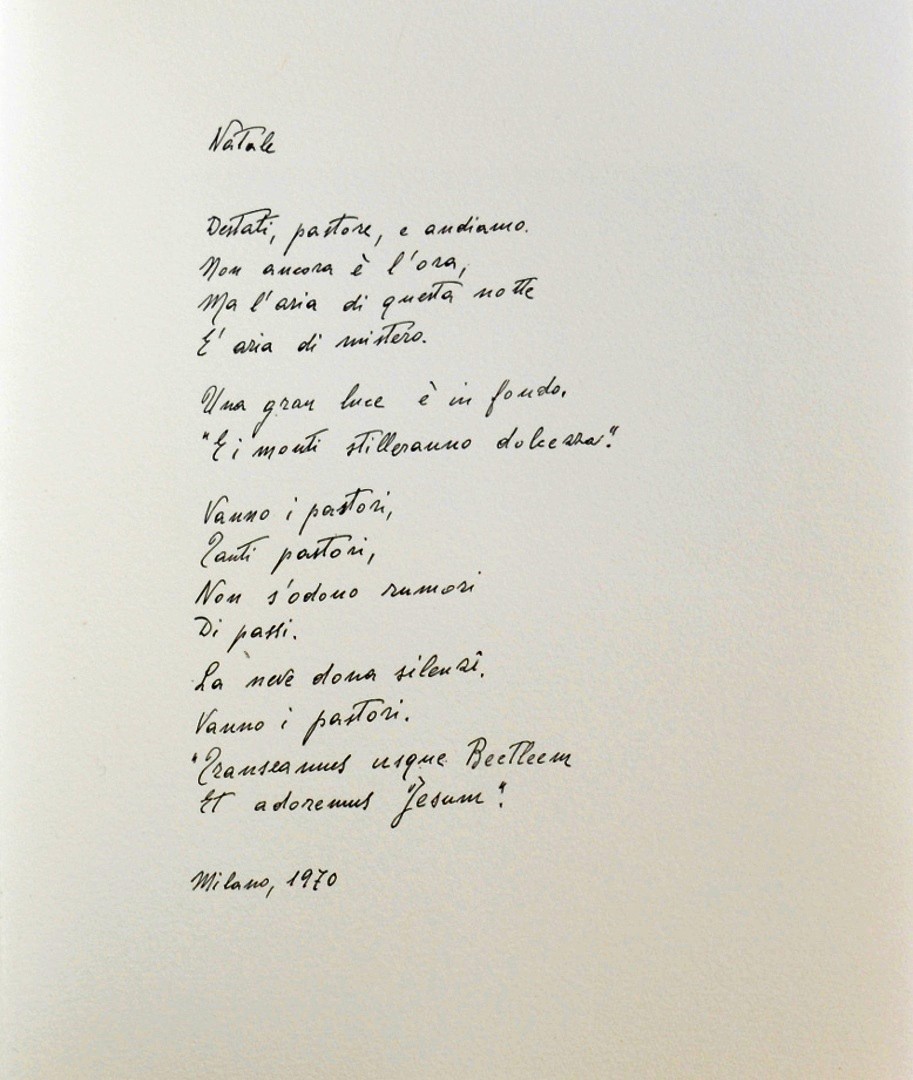 Natale
Destati, pastore, e andiamo.
Non ancora è l'ora,
Ma l'aria di questa notte
E' aria di mistero.
Una gran luce è in fondo.
"E i monti stilleranno dolcezza".
Vanno i pastori,
Tanti pastori,
Non s'odono rumori
Di passi.
La neve dona silenzî.
Vanno i pastori.
"Transeamus usque Beetleem
Et adoremus Jesum".
Milano, 1970